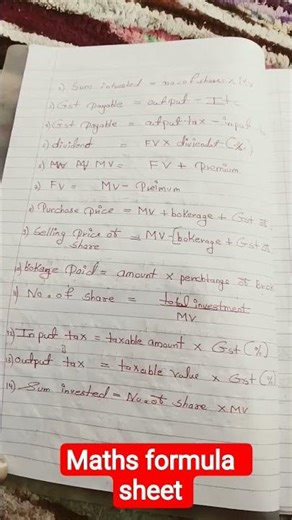 1) Sum invested = no. of share × MV
2) Gst payable = output - Itc
3) Gst payable = output tax - input
4) dividend = FV × dividend (%)
5) MV = FV + Premium
6) FV = MV - Preimum
7) Purchose price = MV + bokerage + Gst
8) Selling price of = MV - [bokerage + Gst
share
10) bokarge Paid = amount × perchtange of
11) No. of share = total investment
MV
12) Input tax = taxable amount × Gst (%)
13) output tax = taxable value × Gst (%)
14) Sum invested = No. of share × MV
Maths formula
sheet